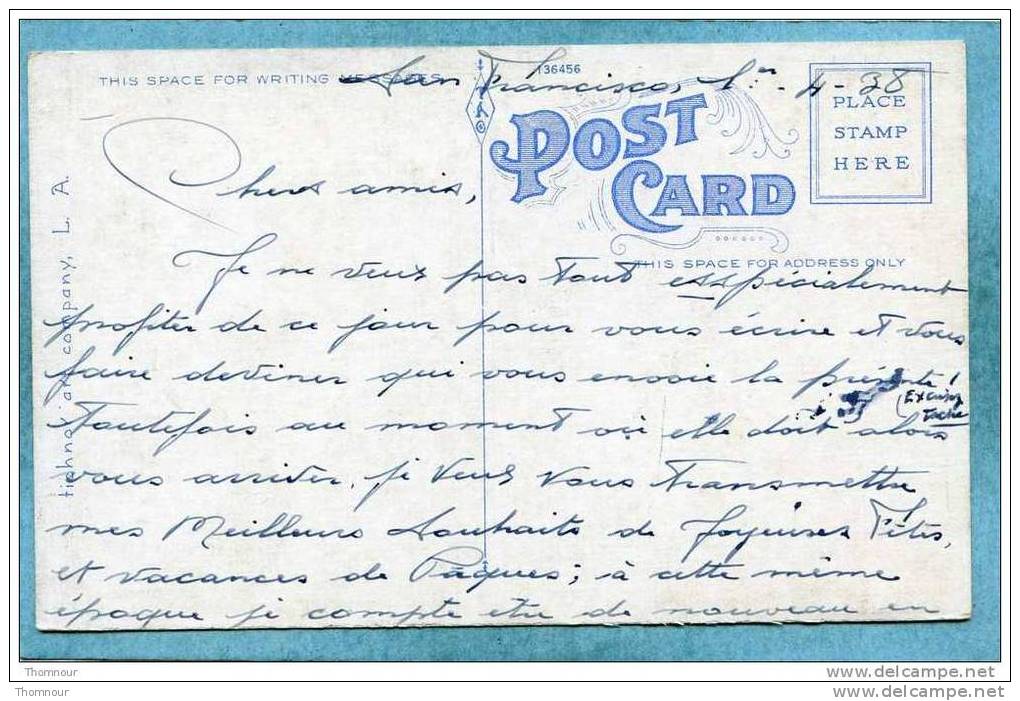 THIS SPACE FOR WRITING MESSAGES
136456
San Francisco, 1er - 4 - 38
POST CARD
PLACE
STAMP
HERE
THIS SPACE FOR ADDRESS ONLY
Chers amis,
Je ne veux pas tout esspécialement
profiter de ce jour pour vous écrire et vous
faire deviner qui vous envoie la présente!
(Excusez
tache
Toutefois au moment où elle doit alors
vous arriver, je veux vous transmettre
mes Meilleurs Souhaits de Joyeuses Fêtes,
et vacances de Pâques; à cette même
époque je compte etre de nouveau en
company, L. A.
Thomnour
Thomnour
delcampe.net
delcampe.net